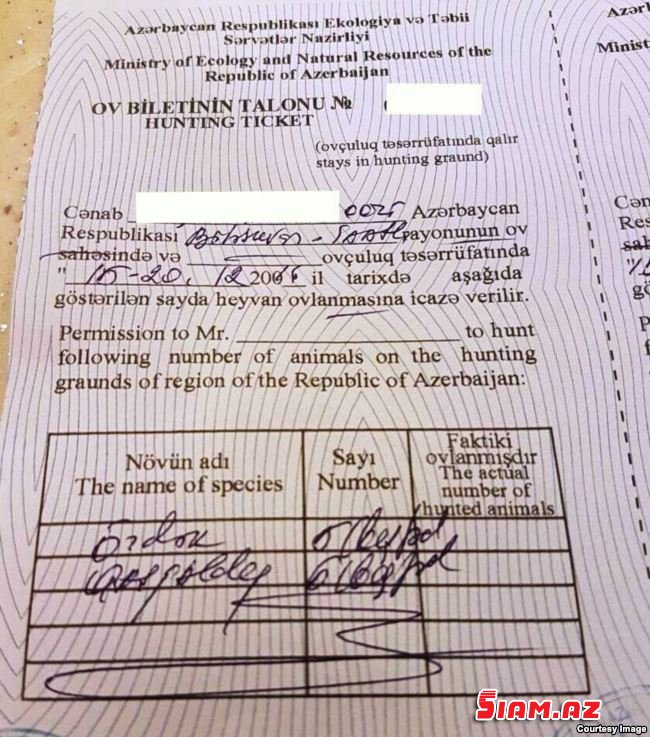 Azərbaycan Respublikası Ekologiya və Təbii
Sərvətlər Nazirliyi
Ministry of Ecology and Natural Resources of the
Republic of Azerbaijan
OV BİLETİNİN TALONU №
HUNTING TICKET
(ovçuluq təsərrüfatında qalır
stays in hunting graund)
Cənab Azərbaycan
Respublikası rayonunun ov
sahəsində və ovçuluq təsərrüfatında
" 15-20. 12 200 il tarixdə aşağıda
göstərilən sayda heyvan ovlanmasına icazə verilir.
Permission to Mr. to hunt
following number of animals on the hunting
graunds of region of the Republic of Azerbaijan:
Növün adı
The name of species
Sayı
Number
Faktiki
ovlanmışdır
The actual
number of
hunted animals
Ördək 5 (beş)
Qaşqaldaq
Azərb
Minist
Cən
Res
sah
gö
P
SİAM.AZ
Courtesy Image